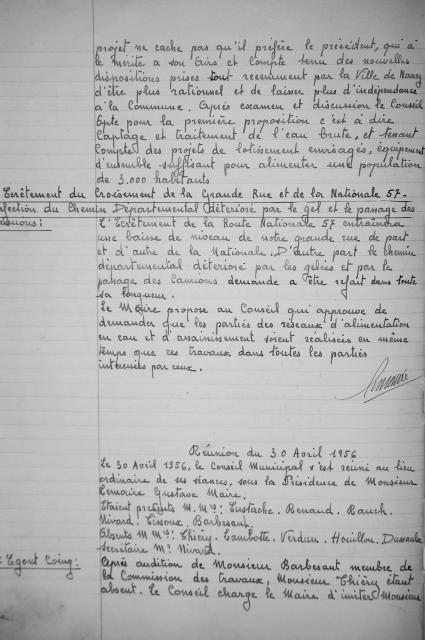 projet ne cache pas qu'il préfère le précédent, qui a
le mérite à son avis et compte tenu des nouvelles
dispositions prises tout récemment par la Ville de Nancy
d'être plus rationnel et de laisser plus d'indépendance
à la Commune. Après examen et discussion le Conseil
opte pour la première proposition c'est à dire
Captage et traitement de l'eau brute, et tenant
Compte des projets de lotissement envisagés, équipement
d'ensemble suffisant pour alimenter une population
de 3.000 habitants.
Ecrêtement du Croisement de la Grande Rue et de la Nationale 57.-
fection du Chemin Départemental détérioré par le gel et le passage des
camions :
L'Ecrêtement de la Route Nationale 57 entraînera
une baisse de niveau de notre grande rue de part
et d'autre de la Nationale. D'autre part le chemin
départemental détérioré par les gelées et par le
passage des Camions demande à être refait dans toute
sa longueur.
Le Maire propose au Conseil qui approuve de
demander que les parties des réseaux d'alimentation
en eau et d'assainissement soient réalisées en même
temps que ces travaux dans toutes les parties
intéressées par eux.
Réunion du 30 Avril 1956
Le 30 Avril 1956, le Conseil Municipal s'est réuni au lieu
ordinaire de ses séances, sous la Présidence de Monsieur
Lemaire Gustave Maire.
Etaient présents M.Mrs: Eustache. Renaud. Rauch.
Nivard. Barbesant.
Absents M Mrs: Thiéry. Lambotte. Verdun. Houillon.
Secrétaire Mr Nivard.
Agent Coing:
Après audition de Monsieur Barbesant membre de
la Commission des travaux, Monsieur Thiéry étant
absent. le Conseil charge le Maire d'inviter Monsieur